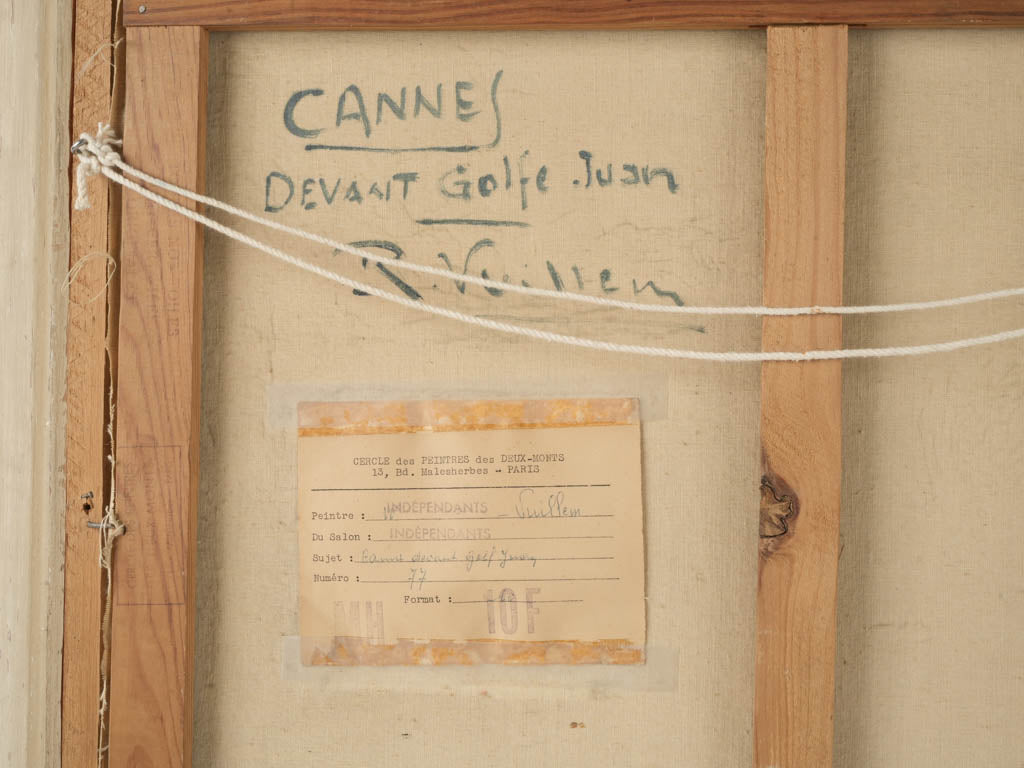 CANNES
DEVANT Golfe Juan
R. Vuillem
CERCLE des PEINTRES des DEUX-MONTS
13, Bd. Malesherbes - PARIS
Peintre : INDÉPENDANTS - Vuillem
Du Salon : INDÉPENDANTS
Sujet : devant Golf Juan
Numéro : 77
Format : 10F
MH